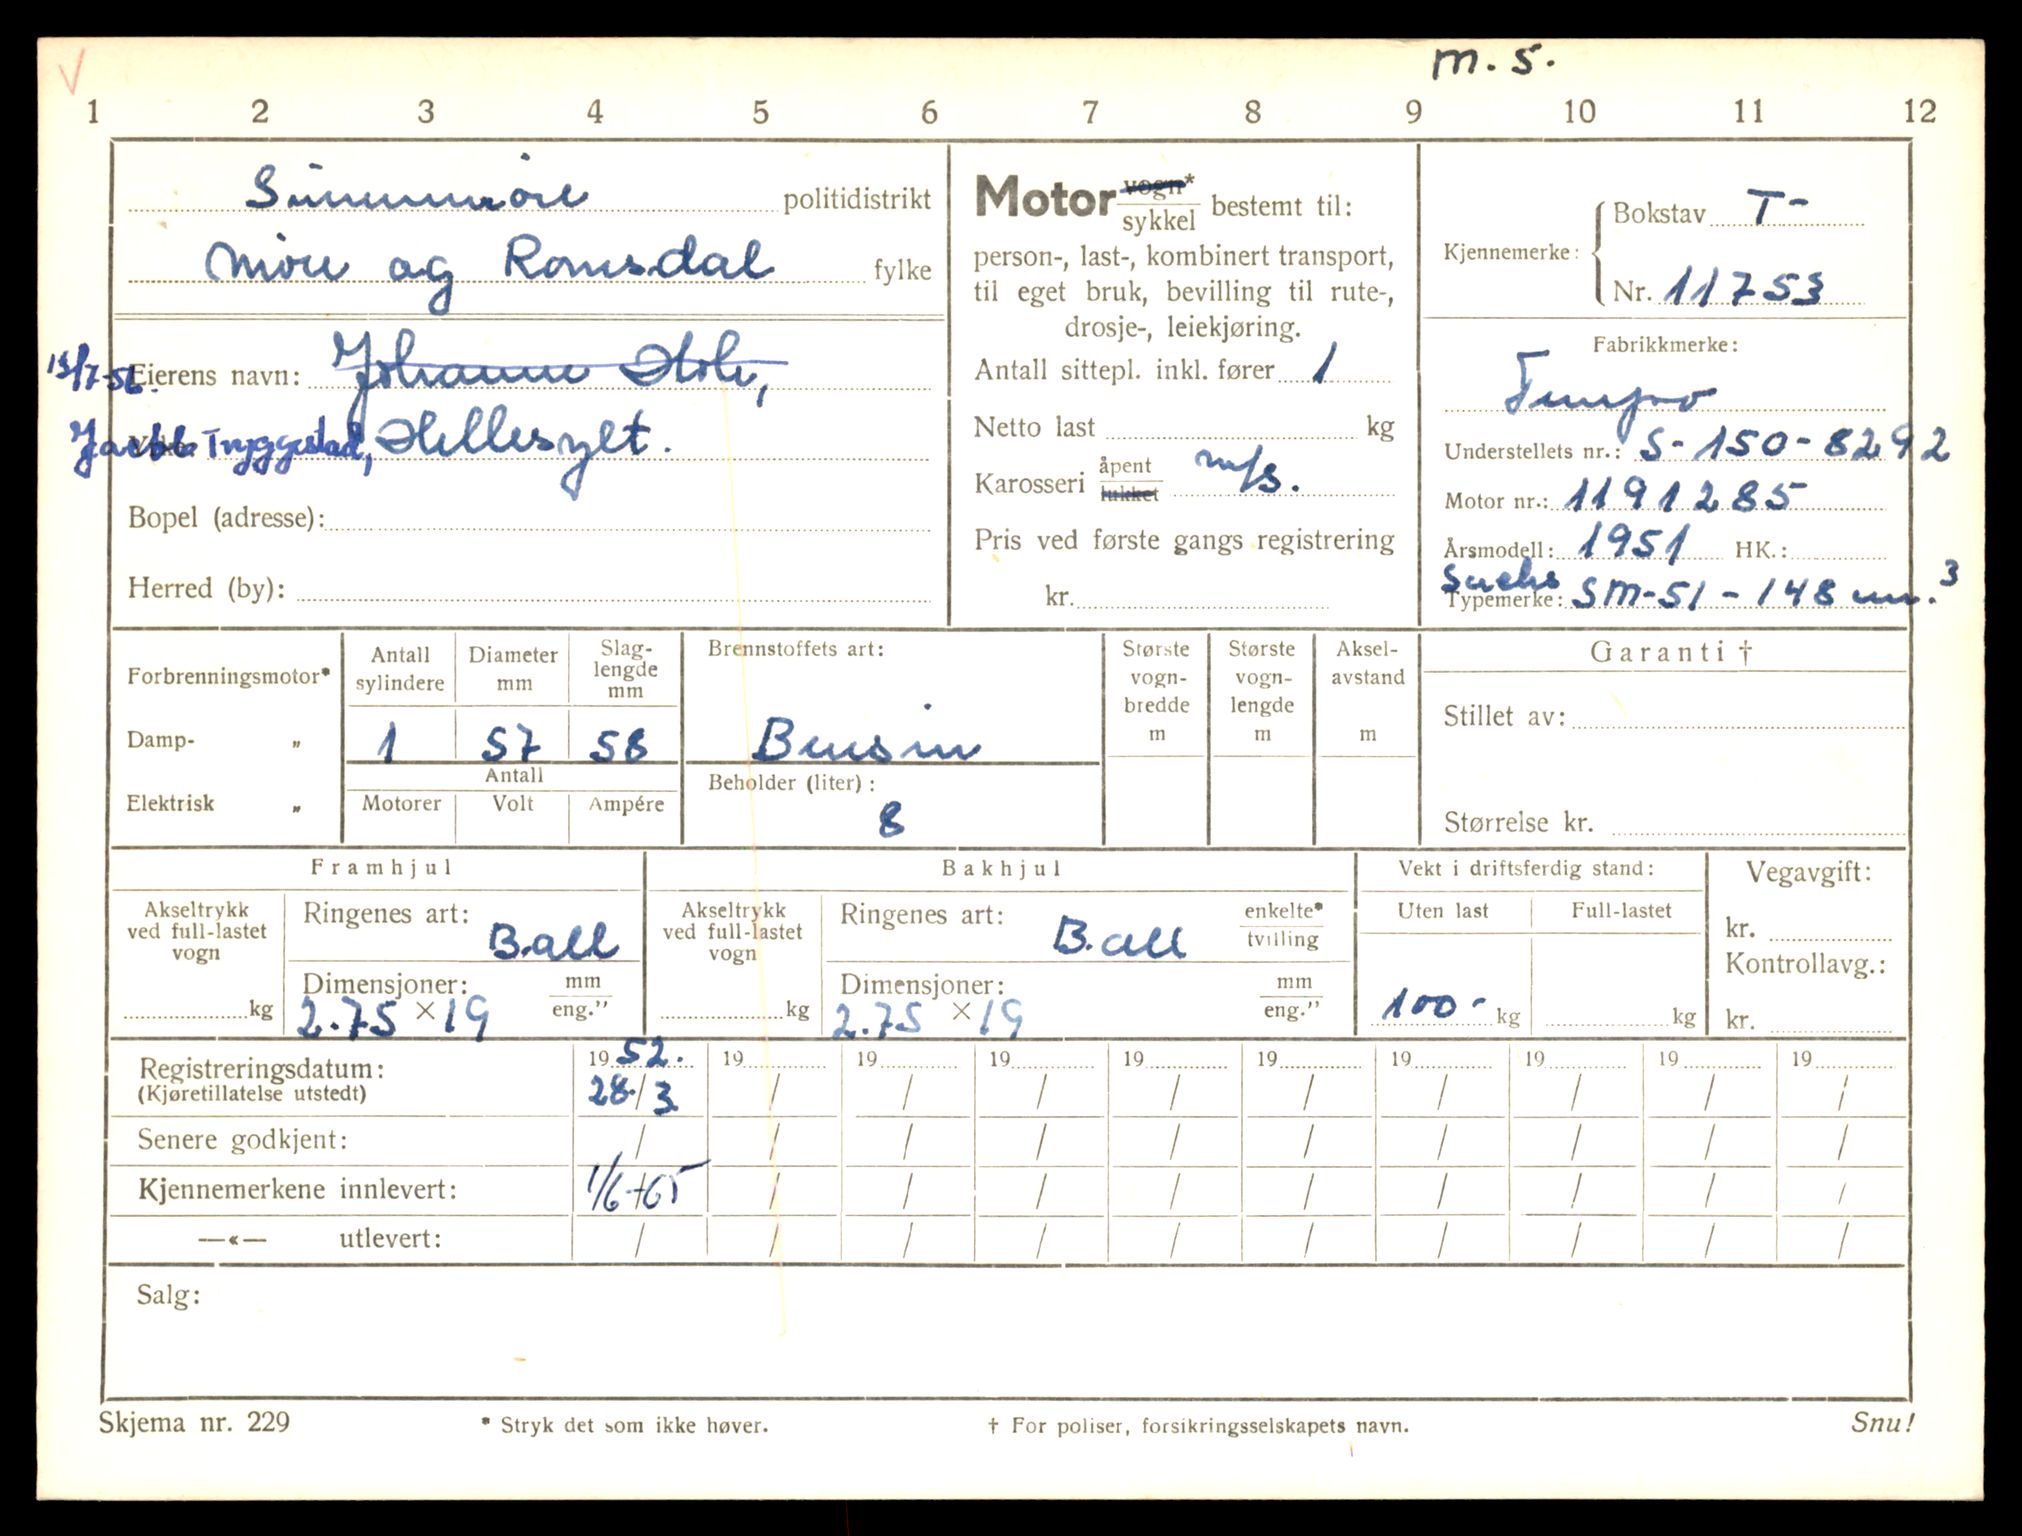 m. s.
1 2 3 4 5 6 7 8 9 10 11 12
Sunnmöre politidistrikt
Möre og Romsdal fylke
Eierens navn: Johanne Hole,
13/7-56.
Jacob Tryggestad, Hellesylt.
Bopel (adresse):
Herred (by):
Motor vogn*
sykkel bestemt til:
person-, last-, kombinert transport,
til eget bruk, bevilling til rute-,
drosje-, leiekjøring.
Antall sittepl. inkl. fører 1
Netto last kg
Karosseri åpent m/s.
lukket
Pris ved første gangs registrering
kr.
Kjennemerke: Bokstav T-
Nr. 11753
Fabrikkmerke:
Tempo
Understellets nr.: S-150-8292
Motor nr.: 1191285
Årsmodell: 1951 HK.:
Sachs
Typemerke: SM-51-148 cm.³
Forbrenningsmotor*
Damp- „
Elektrisk „
Antall sylindere
1
Diameter mm
57
Slaglengde mm
58
Antall
Motorer Volt Ampére
Brennstoffets art:
Bensin
Beholder (liter):
8
Største vogn-
bredde
m
Største vogn-
lengde
m
Aksel-
avstand
m
Garanti †
Stillet av:
Størrelse kr.
Framhjul
Akseltrykk
ved full-lastet
vogn
kg
Ringenes art:
B.all
Dimensjoner: mm
2.75 × 19 eng."
Bakhjul
Akseltrykk
ved full-lastet
vogn
kg
Ringenes art: enkelte*
B.all tvilling
Dimensjoner: mm
2.75 × 19 eng."
Vekt i driftsferdig stand:
Uten last Full-lastet
100- kg kg
Vegavgift:
kr.
Kontrollavg.:
kr.
Registreringsdatum: 1952. 19 19 19 19 19 19 19 19 19
(Kjøretillatelse utstedt) 28./3 / / / / / / / / /
Senere godkjent: / / / / / / / / / /
Kjennemerkene innlevert: 1/6-65 / / / / / / / / /
—«— utlevert: / / / / / / / / / /
Salg:
Skjema nr. 229 * Stryk det som ikke høver. † For poliser, forsikringsselskapets navn. Snu!